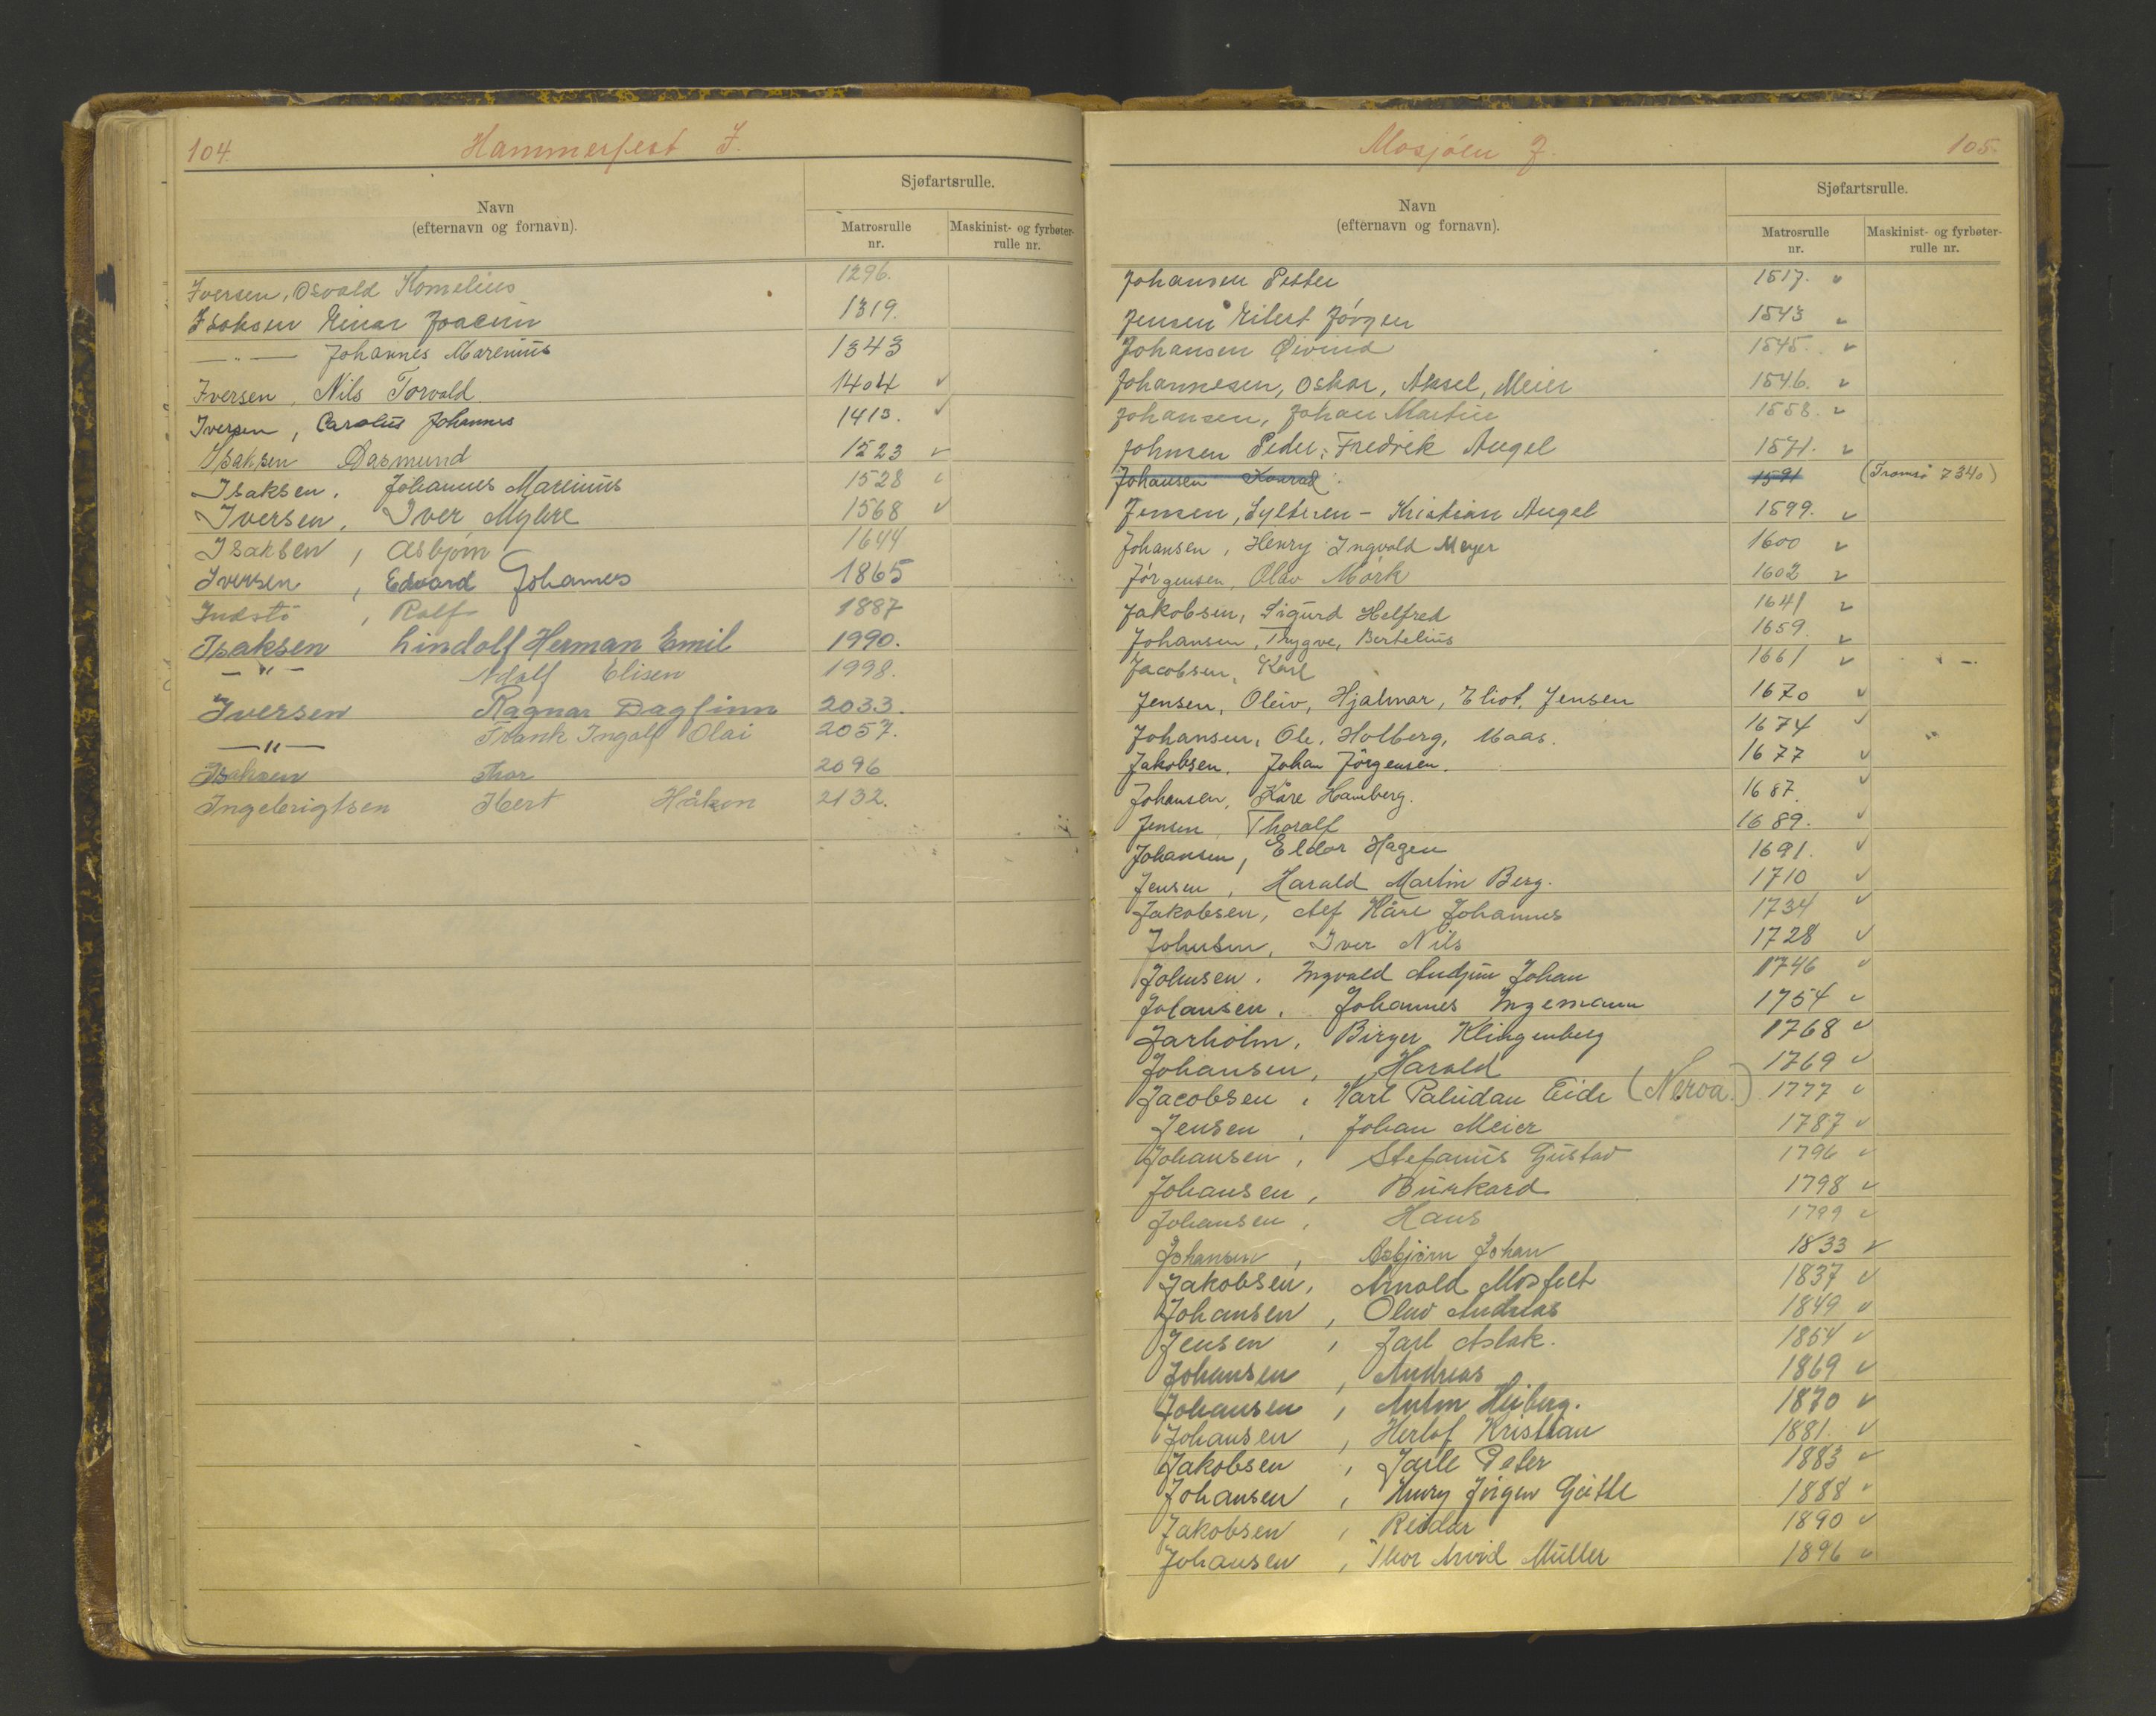 104.
Hammerfest I.
Navn
(efternavn og fornavn).
Sjøfartsrulle.
Matrosrulle
nr.
Maskinist- og fyrbøter-
rulle nr.
Iversen, Osvald Kornelius 1296.
Isaksen Einar Joacim 1319.
— " — Johannes Marenius 1343
Iversen, Nils Torvald. 1404 ✓
Iversen, Carolus Johannes 1413. ✓
Isaksen Dagmund 1523 ✓
Isaksen, Johannes Marenius 1528 ✓
Iversen, Iver Myhre 1568 ✓
Isaksen, Asbjørn 1644
Iversen, Edvard Johannes 1865
Indstö, Rolf 1887
Isaksen Lindolf Herman Emil 1990.
— " — Adolf Elisen 1998.
Iversen Ragnar Dagfinn 2033.
— " — Frank Ingolf Olai 2057.
Isaksen Thor 2096
Ingebrigtsen Håkon 2132.
Mosjöen J. 105.
Navn
(efternavn og fornavn).
Sjøfartsrulle.
Matrosrulle
nr.
Maskinist- og fyrbøter-
rulle nr.
Johansen Petter 1517. ✓
Jensen Eilert Jörgen 1543 ✓
Johansen Øivind 1545. ✓
Johannesen, Oskar, Aksel, Meier 1546. ✓
Johansen, Johan Martin 1558. ✓
Johnsen Peder, Fredrik Angel 1571. ✓
Johansen Konrad 1591 (Tromsö 7340)
Jensen, Sylteren - Kristian Angel 1599. ✓
Johansen, Henry Ingvald Meyer 1600 ✓
Jörgensen, Olav Mörk 1602 ✓
Jakobsen, Sigurd Helfred 1641 ✓
Johansen, Trygve, Bertelius 1659. ✓
Jacobsen, Karl 1661 ✓
Jensen, Oleiv, Hjalmar, Eliot, Jensen 1670 ✓
Johansen, Ole, Holberg, Maas. 1674 ✓
Jakobsen, Johan Jörgensen. 1677 ✓
Johansen, Kåre Hamberg. 1687. ✓
Jensen, Thoralf 1689. ✓
Johansen, Eldor Hagen 1691. ✓
Jensen, Harald Martin Berg. 1710 ✓
Jakobsen, Alf Kåre Johannes 1734 ✓
Johnsen, Iver Nils 1728 ✓
Johnsen, Ingvald Johan 1746 ✓
Johansen, Johannes Ingemann 1754 ✓
Jarholm, Birger Klingenberg 1768 ✓
Johansen, Harald 1769 ✓
Jacobsen, Karl Paludan Eide (Neroa.) 1777 ✓
Jensen, Johan Meier 1787 ✓
Johansen, Stefanus Gustav 1796 ✓
Johansen, Burkard 1798 ✓
Johansen, Hans 1799 ✓
Johansen, Asbjörn Johan 1833 ✓
Jakobsen, Arnold Mosfelt 1837 ✓
Johansen, Olav Andreas 1849 ✓
Jensen, Jarl Aslak. 1854 ✓
Johansen, Andreas 1869 ✓
Johansen, Anton Heiberg. 1870 ✓
Johansen, Herlof Kristian 1881. ✓
Jakobsen, Jarle Peter 1883 ✓
Johansen, Henry Jörgen 1888 ✓
Jakobsen, Reidar 1890 ✓
Johansen, Thor Arvid Müller 1896 ✓